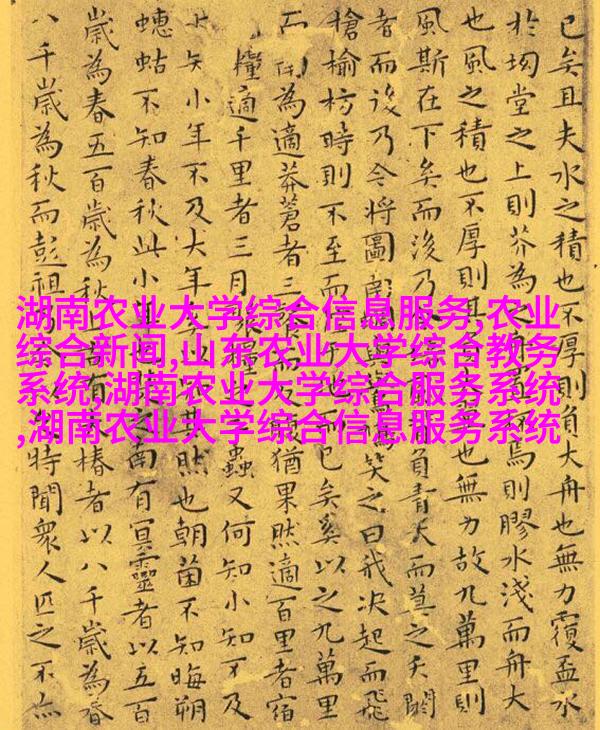 湖南农业大学综合信息服务,农业
综合新闻,山东农业大学综合教务
系统,湖南农业大学综合服务系统
,湖南农业大学综合信息服务系统
已矣且夫水之積也不厚則負大舟也無力覆盃水
於坳堂之上則芥為之焉則膠水淺而舟大
也風之積也不厚則其負翼也無力故九萬里則
風斯在下矣而後乃今風背負青天而莫之夭閼
者而後乃今將圖南蜩與笑之曰我決起而飛
槍榆枋時則不至而控於地而已矣奚以之九萬里
而為適莽蒼者三而反猶果然適百里者宿
糧適千里者三月聚糧之二蟲又何知小知不及
大知小年不及大年奚以知其然也朝菌不知晦朔
蟪蛄不知春秋此小年也之南有冥靈者以五百
歲為春五百歲為秋有椿者以八千歲為春
八千歲為秋而彭祖乃今特聞衆人匹之不亦